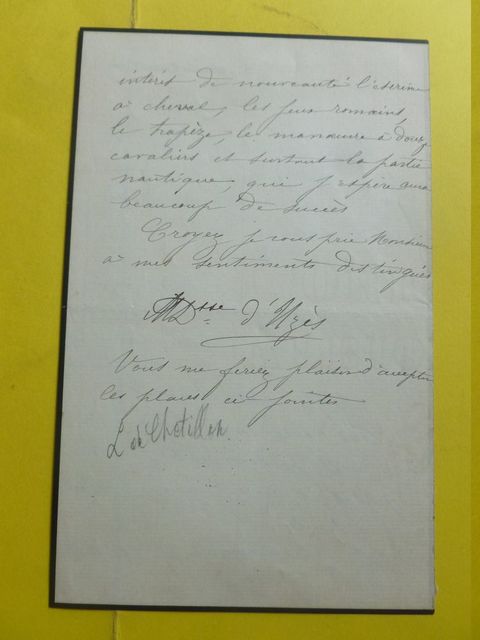 intérêt de nouveauté l'escrime
à cheval, les jeux romains,
le trapèze, le manœuvre à douze
cavaliers et surtout la partie
nautique, qui j'espère aura
beaucoup de succès
Croyez je vous prie Monsieur
à mes sentiments distingués
Dsse d'Uzès
Vous me feriez plaisir d'accepter
les places ci jointes